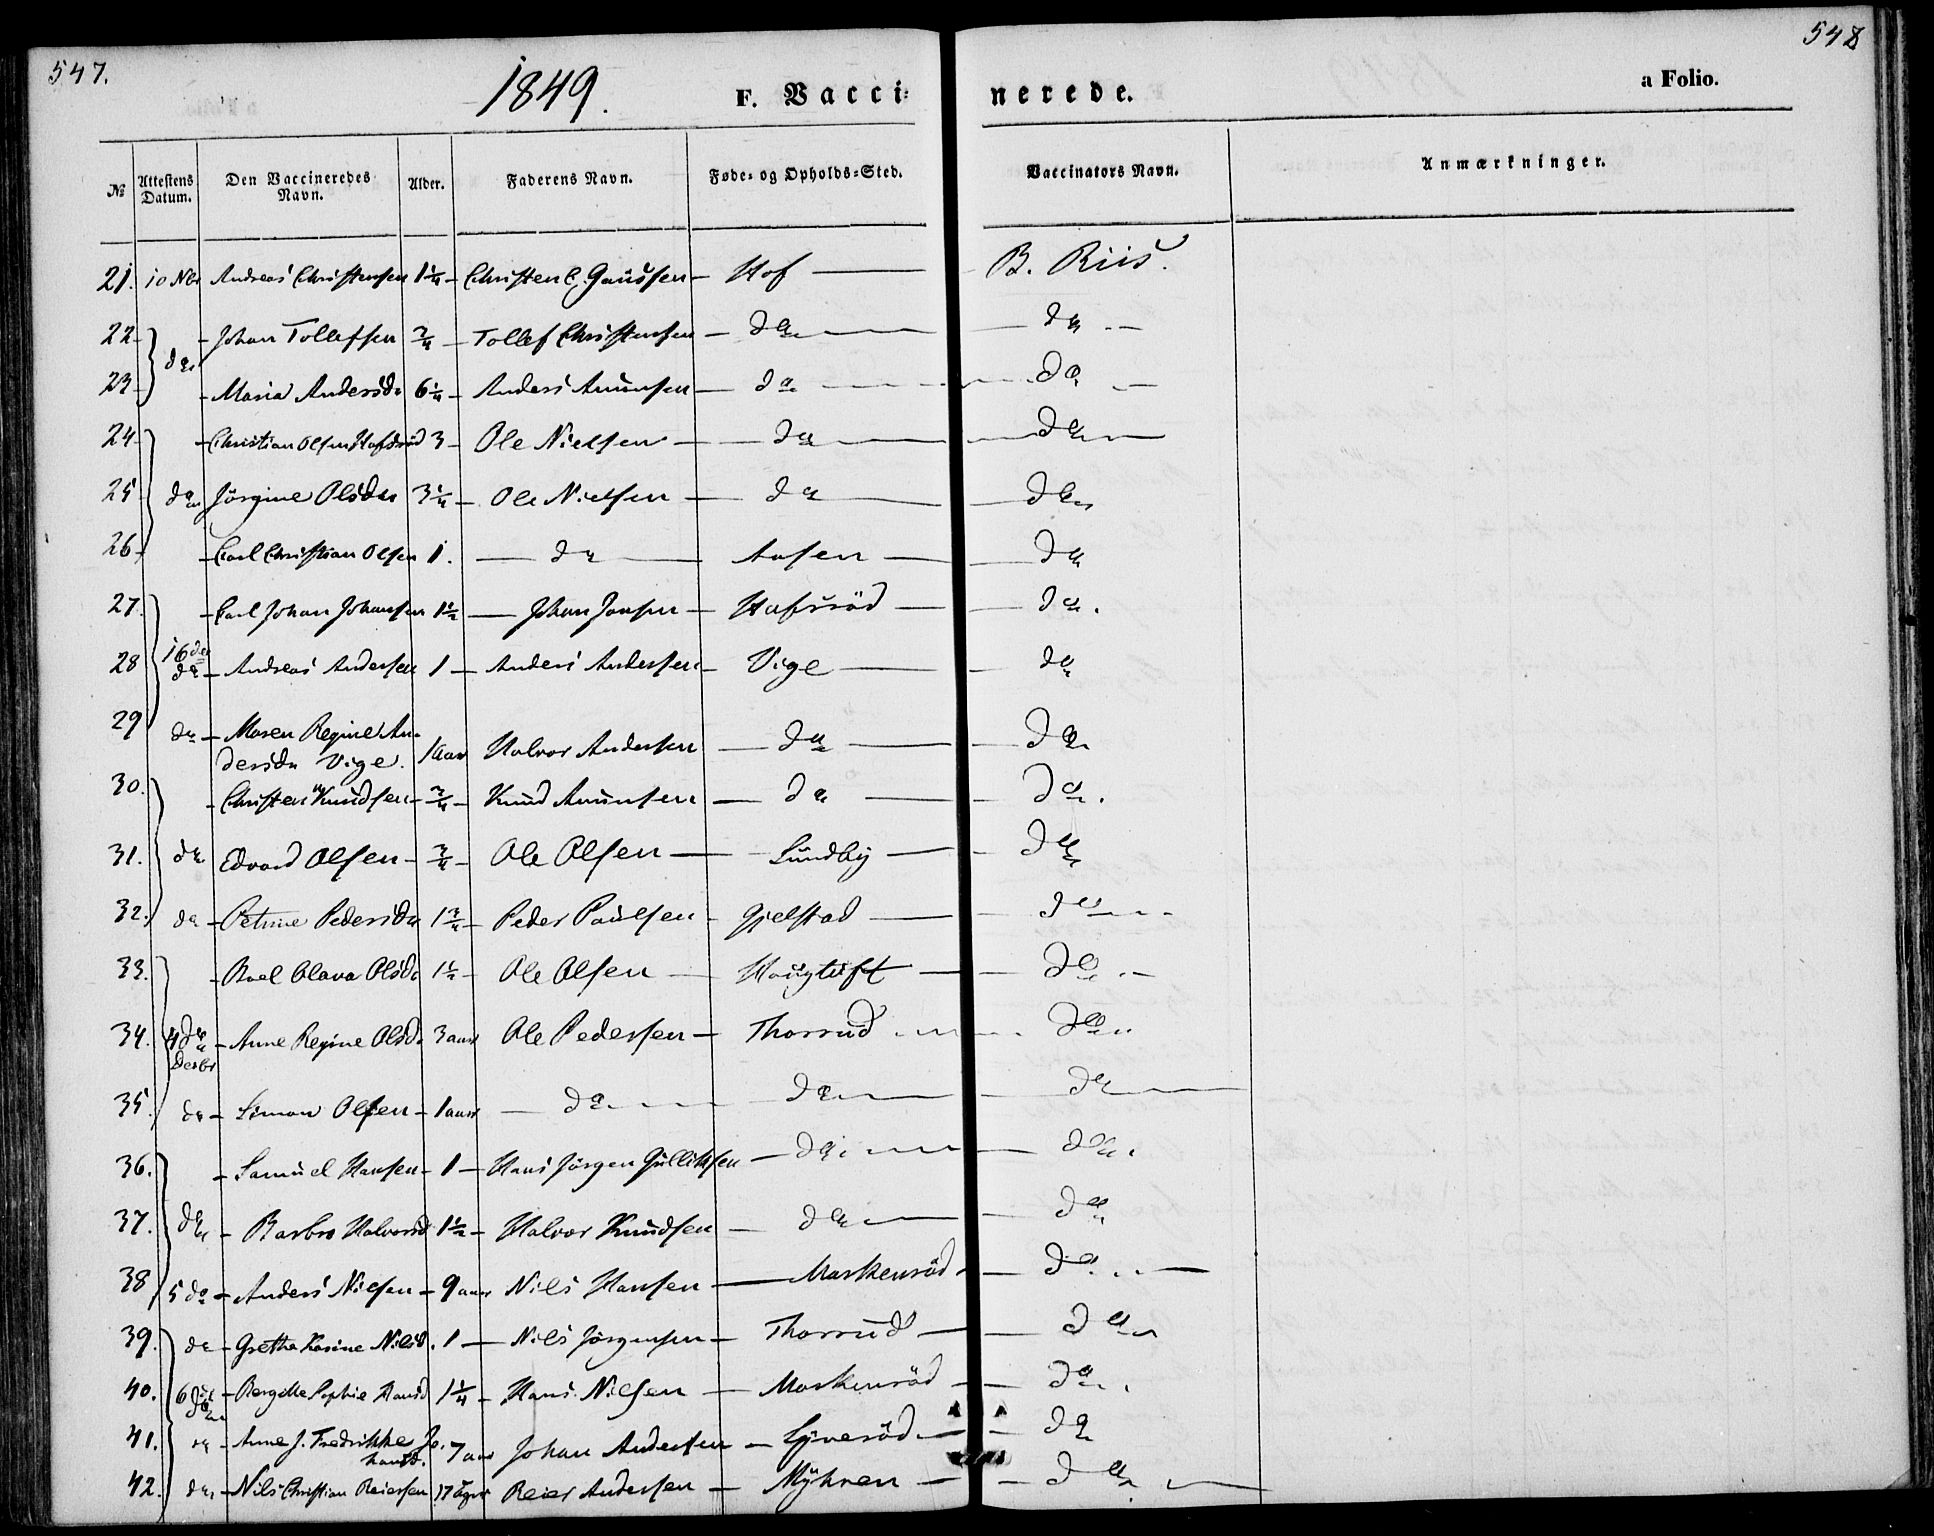 547.
548
1849.
F. Vaccinerede.
a Folio.
№ | Attestens Datum. | Den Vaccineredes Navn. | Alder. | Faderens Navn. | Føde- og Opholds-Sted. | Vaccinators Navn. | Anmærkninger.
21. 10 Nbr Andreas Christensen 1¼ – Christen – Hof — B. Riis.
22 – Johan Tollefsen ¾ – Tollef Christensen – do — do
23 do – Maria Andersdr 6¼ – Anders Amunsen – do — do
24 – Christian Olsen Hafsröd 3 – Ole Nielsen – do — do
25 do Jörgine Olsdr 3¼ – Ole Nielsen – do — do
26 – Carl Christian Olsen 1. – do — Aasen — do
27. – Carl Johan Johansen 1½ – Johan Jonsen – Hafsröd — do.
28 16de do – Andreas Andersen 1 – Anders Andersen – Vige — do
29 do – Maren Regine An-
dersdr Vige. 1 aar Halvor Andersen — do — do
30. – Christen Knudsen – ¾ – Knud Amunsen — do — do.
31. do Edvard Olsen – ¾ – Ole Olsen — Lundby — do
32. do – Petrine Pedersdr 1¾ – Peder Paulsen – Gjelstad — do
33. – Olava Olsdr 1½ – Ole Olsen — Haugtuft — do
34. 4de Desbr – Anne Regine Olsdr 3 aar Ole Pedersen – Thorrud — do
35. do – Simon Olsen – 1 aar – do — do — do
36. – Samuel Hansen – 1 – Hans Jörgen Gulliksen – do — do
37. do – Barbro Halvorsd 1½ – Halvor Knudsen – do — do
38 5 do – Anders Nilsen – 9 aar Nils Hansen — Maskenröd — do
39. do – Grethe Karine Nilsd. 1 – Nils Jörgensen – Thorrud — do
40. 6 – Sophie Hansd 1¼ – Hans Nilsen – Maskenröd — do
41. do – Anne J. Fredrikke Jo-
hansd. 7 aar Johan Andersen – — do
42. do – Nils Christian Reiersen 17 Reier Andersen – Myhren — do